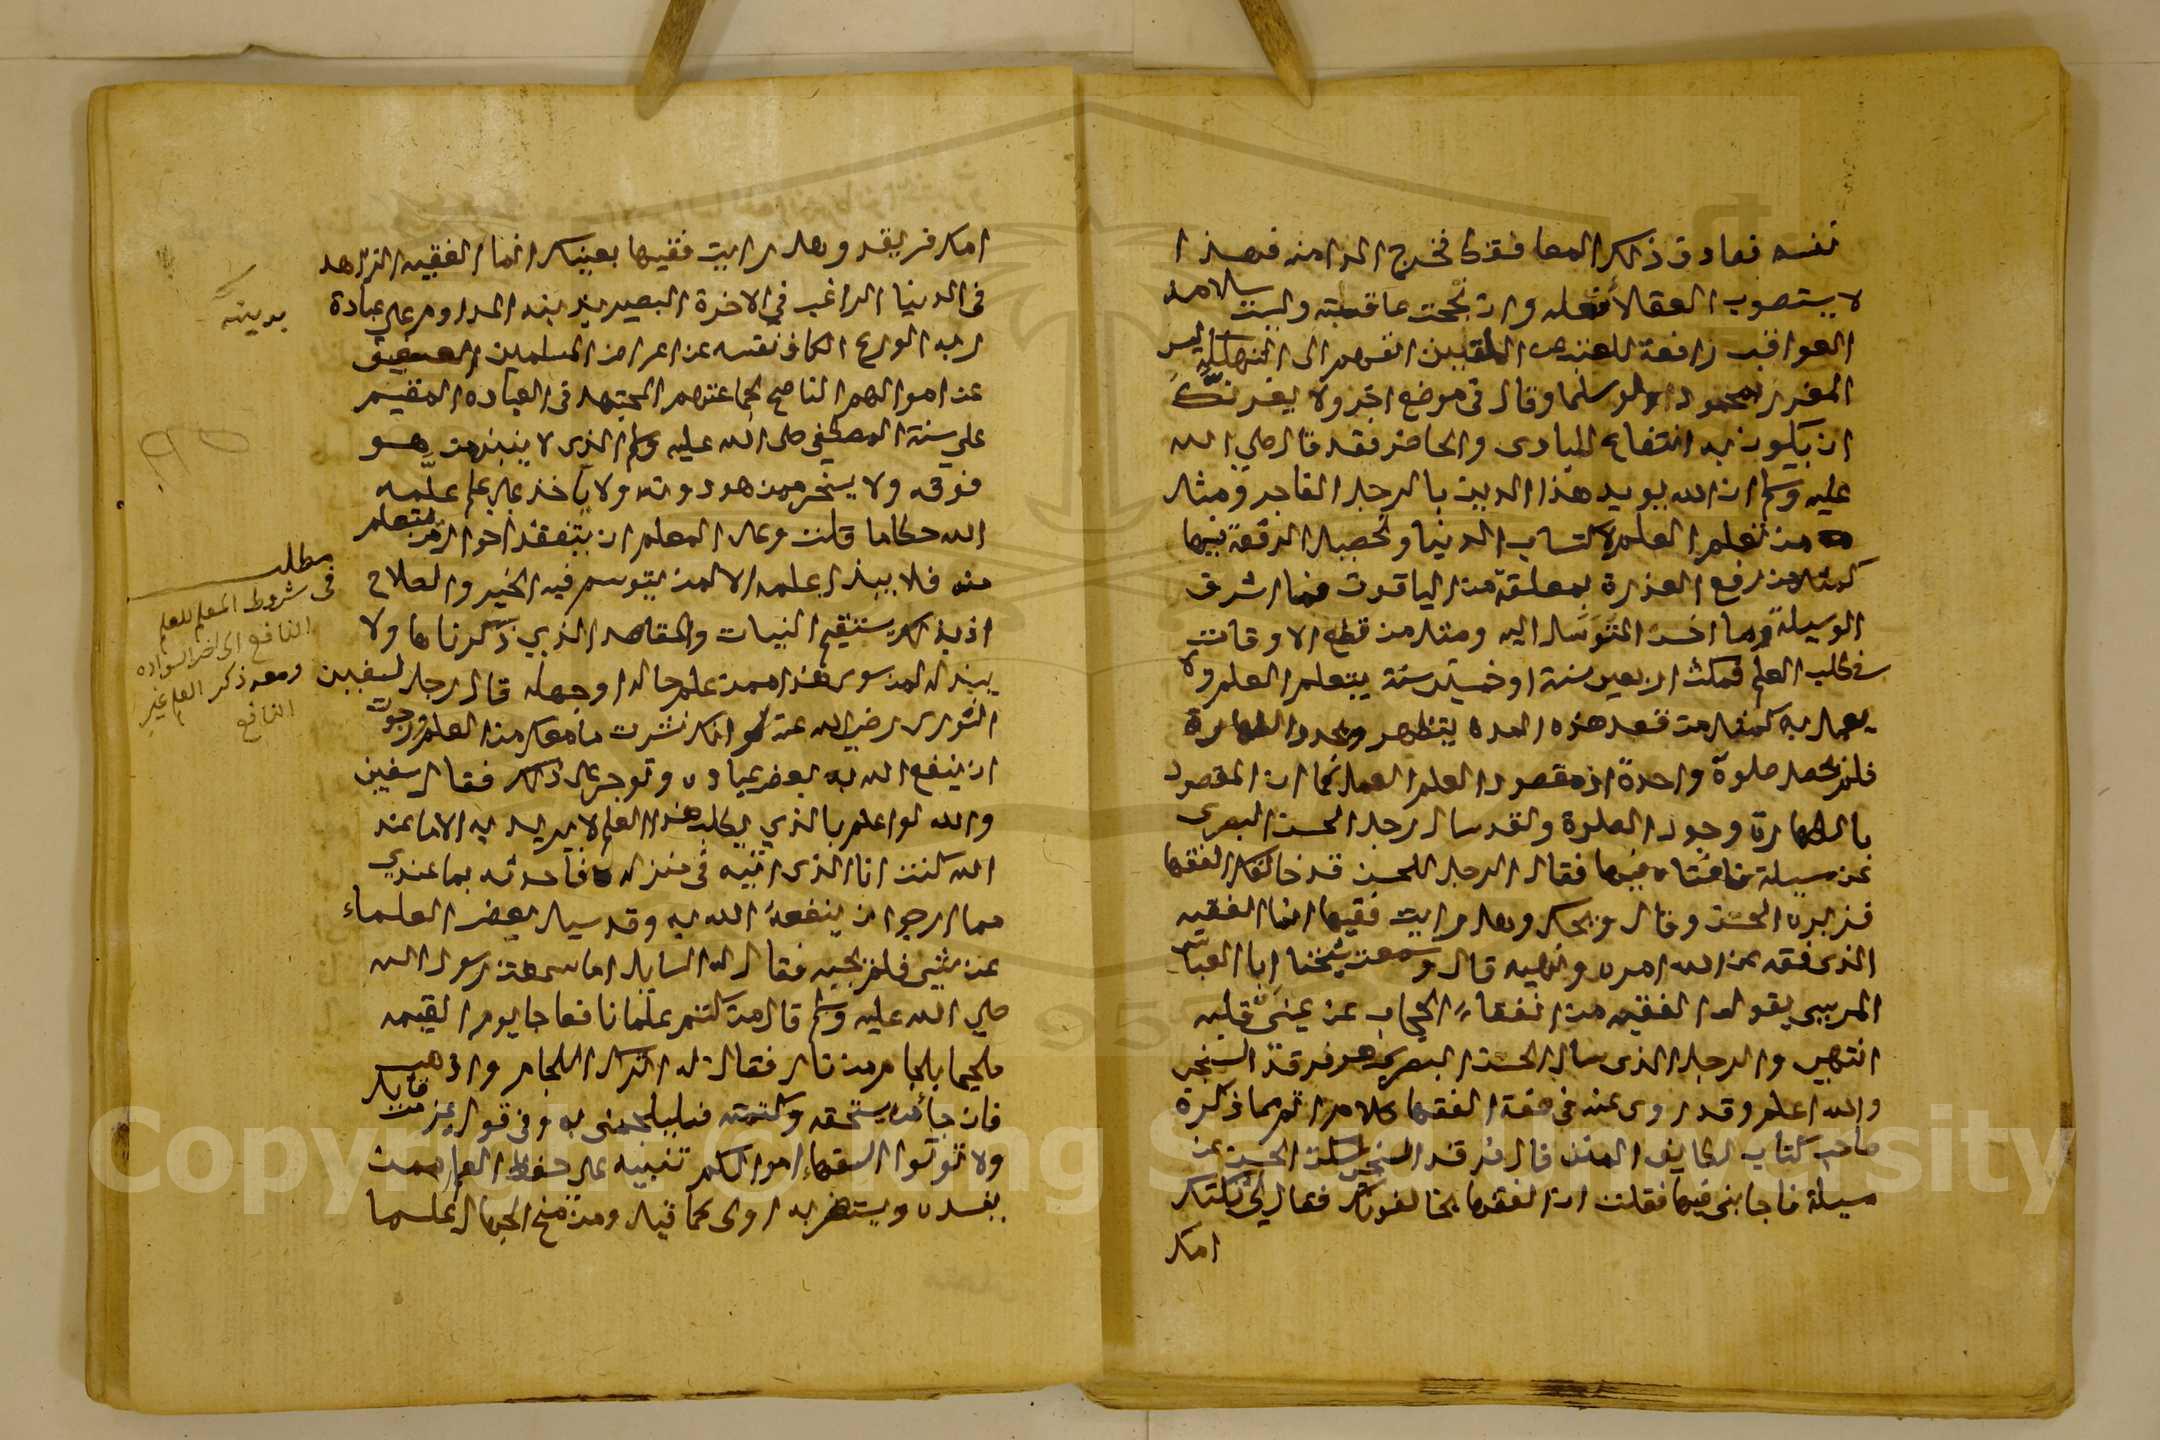 نفسه فصادف ذلك المعا فقذكا فخرج الدا منه فهذا
لا يستصوب العقلا فعله وان نجحت عاقبته وليست سلامه
العواقب رافعة للعتب عن الملقيين انفسهم الى التهلكة ليس
المغرر محمود ولو سلما وقال في موضع اخر ولا يغرنك
ان يكون به انتفاع للبادى والحاضر فقد قال صلى الله
عليه وسلم ان الله يويد هذا الدين بالرجل الفاجر ومثل
من تعلم العلم لاكتساب الدنيا وتحصيل الرفعة فيها
كمثل من رفع العذرة بملعقة من الياقوت فما اشرف
الوسيلة وما اخس المتوسل اليه ومثل من قطع الاوقات
في طلب العلم فمكث اربعين سنة او خمسين سنة يتعلم العلم ولا
يعمل به كمثل من قعد هذه المدة يتطهر ويجدد الطهارة
فلم يصل صلوة واحدة اذ مقصود العلم العمل كما ان المقصود
بالطهارة وجود الصلوة ولقد سال رجل الحسن البصرى
عن مسيلة فافتاه فيها فقال الرجل للحسن قد خالفك الفقها
فزجره الحسن وقال ويحك وهل رايت فقيها انما الفقيه
الذى فقه عن الله امره ونهيه قال وسمعت شيخنا ابا العباس
المرسي يقول الفقيه من انفقاء الحجاب عن عينى قلبه
انتهى والرجل الذى سال الحسن البصري هو فرقد السنجى
والله اعلم وقد روى عنه في صفة الفقها كلام اتم مما ذكره
صاحب كتاب لطايف المنن قال فرقد السنجى سالت الحسن عن
مسيلة فاجابنى فيها فقلت ان الفقها يخالفونك فقال لي ثكلتك
امك
امك فريقد وهل رايت فقيها بعينيك انما الفقيه الزاهد
في الدنيا الراغب في الاخرة البصير بدينه المداوم على عبادة
ربه الورع الكاف نفسه عن اعراض المسلمين العفيف
عن اموالهم الناصح لجماعتهم المجتهد في العباده المقيم
على سنة المصطفى صلى الله عليه وسلم الذى لا ينبذ من هو
فوقه ولا يسخر ممن هو دونه ولا ياخذ على علم علّمه
الله حطاما قلت وعلى المعلم ان يتفقد احوال من يتعلم
منه فلا يبذل علمه الا لمن يتوسم فيه الخير والصلاح
اذ بذلك يستقيم النيات والمقاصد الذي ذكرناها ولا
يبذله لمن سوى هذا ممن علم حاله او جهله قال رجل لسفيين
الثورى رضي الله عنه لو انك نشرت ما معك من العلم رجوت
ان ينفع الله به بعض عباده وتوجر على ذلك فقال سفين
والله لو اعلم بالذي يطلب هذا العلم لا يريد به الا ما عند
الله كنت انا الذى اتيه في منزله فاحدثه بما عندي
مما ارجوا ان ينفعه الله به وقد سيل بعض العلماء
عن شي فلم يجبه فقال له السايل اما سمعت رسول الله
صلى الله عليه وسلم قال من كتم علما نافعا جا يوم القيمه
ملجما بلجام من نار فقال له اترك اللجام واذهب
فان جا من يستحقه وكتمته فليلجمنى به وفي قول عز من قايل
ولا توتوا السفهاء اموالكم تنبيه على حفظ العلم ممن
يفسده ويستضر به اولى كما قيل ومن منح الجهال علما
بدينه
مطلب
في شروط المعلم للعلم
النافع الى اخر السواده
ومعه ذكر العلم غير
النافع